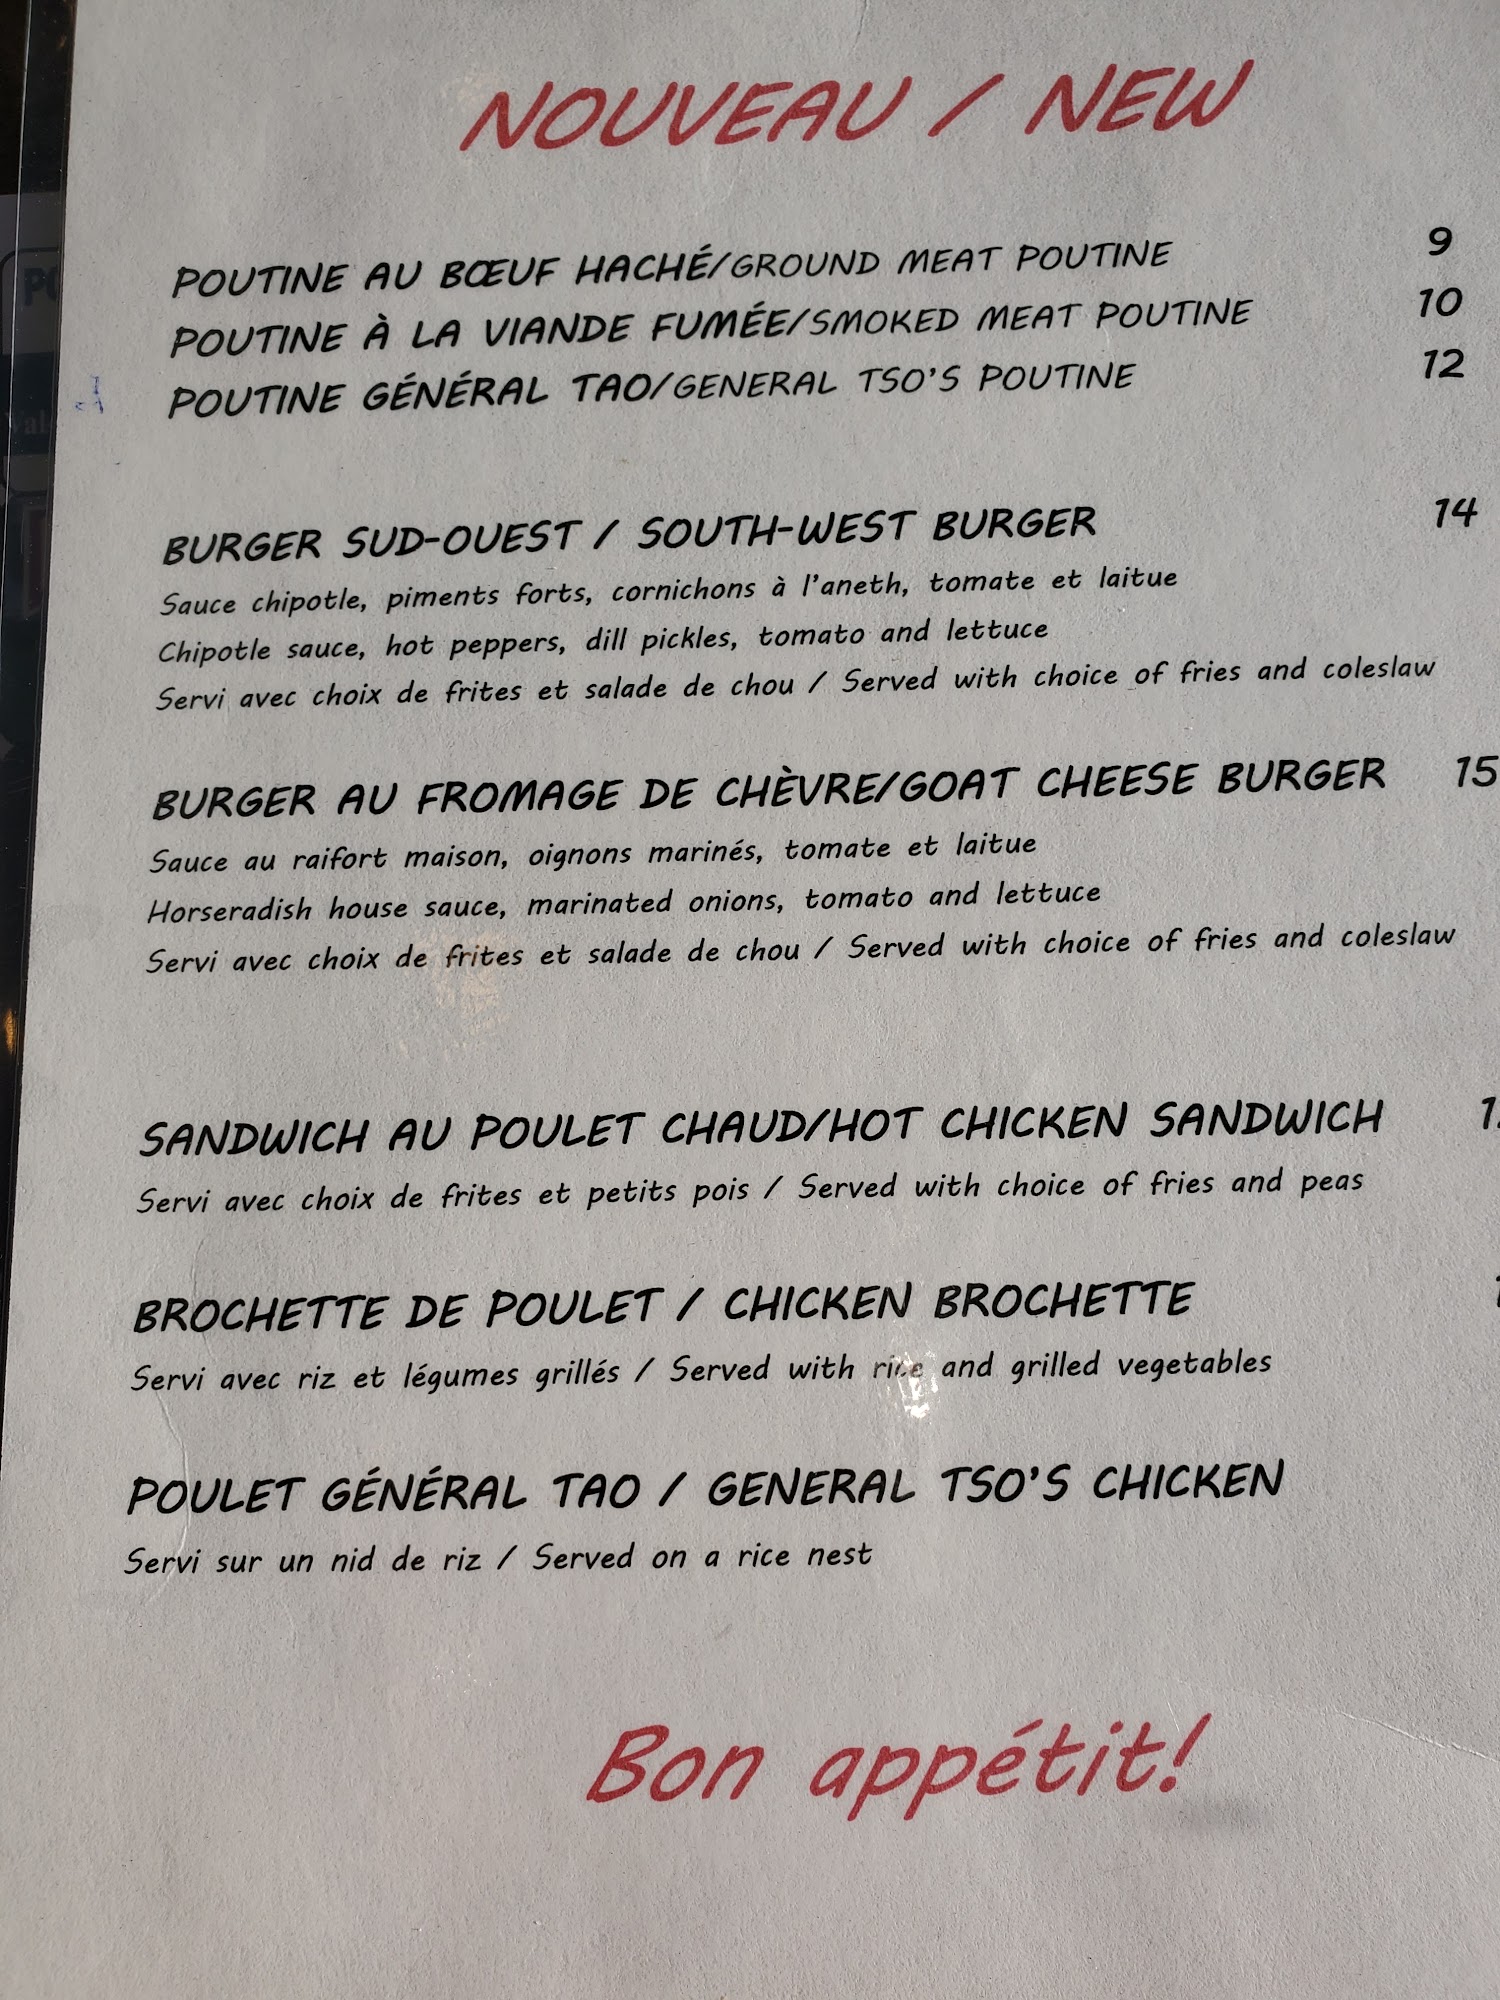 NOUVEAU / NEW
POUTINE AU BŒUF HACHÉ/GROUND MEAT POUTINE 9
POUTINE À LA VIANDE FUMÉE/SMOKED MEAT POUTINE 10
POUTINE GÉNÉRAL TAO/GENERAL TSO'S POUTINE 12
BURGER SUD-OUEST / SOUTH-WEST BURGER 14
Sauce chipotle, piments forts, cornichons à l'aneth, tomate et laitue
Chipotle sauce, hot peppers, dill pickles, tomato and lettuce
Servi avec choix de frites et salade de chou / Served with choice of fries and coleslaw
BURGER AU FROMAGE DE CHÈVRE/GOAT CHEESE BURGER 15
Sauce au raifort maison, oignons marinés, tomate et laitue
Horseradish house sauce, marinated onions, tomato and lettuce
Servi avec choix de frites et salade de chou / Served with choice of fries and coleslaw
SANDWICH AU POULET CHAUD/HOT CHICKEN SANDWICH
Servi avec choix de frites et petits pois / Served with choice of fries and peas
BROCHETTE DE POULET / CHICKEN BROCHETTE
Servi avec riz et légumes grillés / Served with rice and grilled vegetables
POULET GÉNÉRAL TAO / GENERAL TSO'S CHICKEN
Servi sur un nid de riz / Served on a rice nest
Bon appétit!